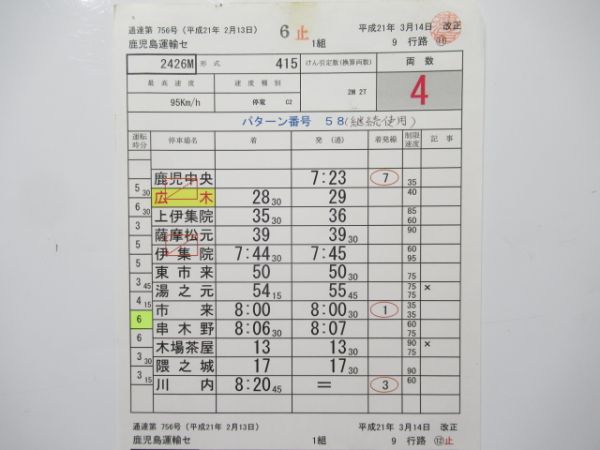 通達第 756号 (平成21年 2月13日) 6 止 平成21年 3月14日 改正
鹿児島運輸セ 1組 9 行路 ⑪
2426M 形式 415 けん引定数(換算両数) 両数
最高速度 速度種別 2M 2T 4
95Km/h 停電 C2
パターン番号 58 (継続使用)
運転時分 停車場名 着 発 (通) 着発線 制限速度 記事
鹿児中央 7:23 7 35
5 30 広木 28 30 29 40
6 30 上伊集院 35 30 36 85 60
3 薩摩松元 39 39 30 90
5 伊集院 7:44 30 7:45 60 95
5 東市来 50 50 30 75
3 45 湯之元 54 15 55 45 75 75 ×
4 15 市来 8:00 8:00 30 1 35 35
6 串木野 8:06 30 8:07 60 75
6 木場茶屋 13 13 30 90 75 ×
3 30 隈之城 17 17 30 90
3 15 川内 8:20 45 = 3 60
通達第 756号 (平成21年 2月13日) 平成21年 3月14日 改正
鹿児島運輸セ 1組 9 行路 ⑫止